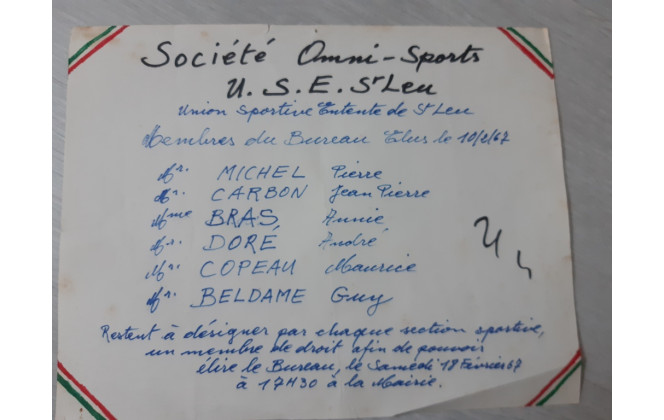 Société Omni-Sports
U.S.E. St Leu
Union Sportive Entente de St Leu
Membres du Bureau Elus le 10/2/67
Mr. MICHEL Pierre
Mr. CARBON Jean Pierre
Mme BRAS Annie
Mr. DORÉ André
Mr. COPEAU Maurice
Mr. BELDAME Guy
Restent à désigner par chaque section sportive,
un membre de droit afin de pouvoir
élire le Bureau, le Samedi 18 Février 67
à 17H30 à la Mairie.